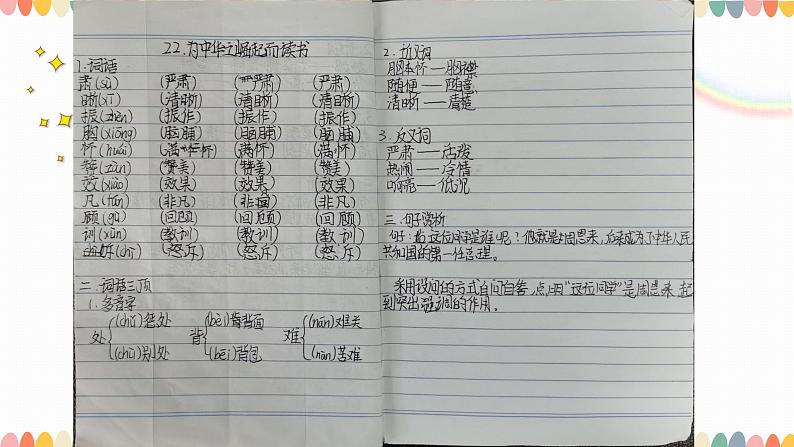 22.为中华之崛起而读书
1.词语
肃(sù) (严肃) (严肃) (严肃)
晰(xī) (清晰) (清晰) (清晰)
振(zhèn) (振作) (振作) (振作)
胸(xiōng) (胸脯) (胸脯) (胸脯)
怀(huái) (满怀) (满怀) (满怀)
赞(zàn) (赞美) (赞美) (赞美)
效(xiào) (效果) (效果) (效果)
凡(fán) (非凡) (非凡) (非凡)
顾(gù) (回顾) (回顾) (回顾)
训(xùn) (教训) (教训) (教训)
斥(chì) (怒斥) (怒斥) (怒斥)
二.词语三项
1.多音字
处 (chǔ)惩处 背 (bèi)背面 难 (nàn)难关
(chù)别处 (bēi)背包 (nán)苦难
2.近义词
胸怀——胸襟
随便——随意
清晰——清楚
3.反义词
严肃——活泼
热闹——冷清
响亮——低沉
三.句子赏析
句子:这位同学是谁呢?他就是周恩来,后来成为了中华人民
共和国的第一任总理。
采用设问的方式自问自答,点明"这位同学"是周恩来,起
到突出强调的作用。